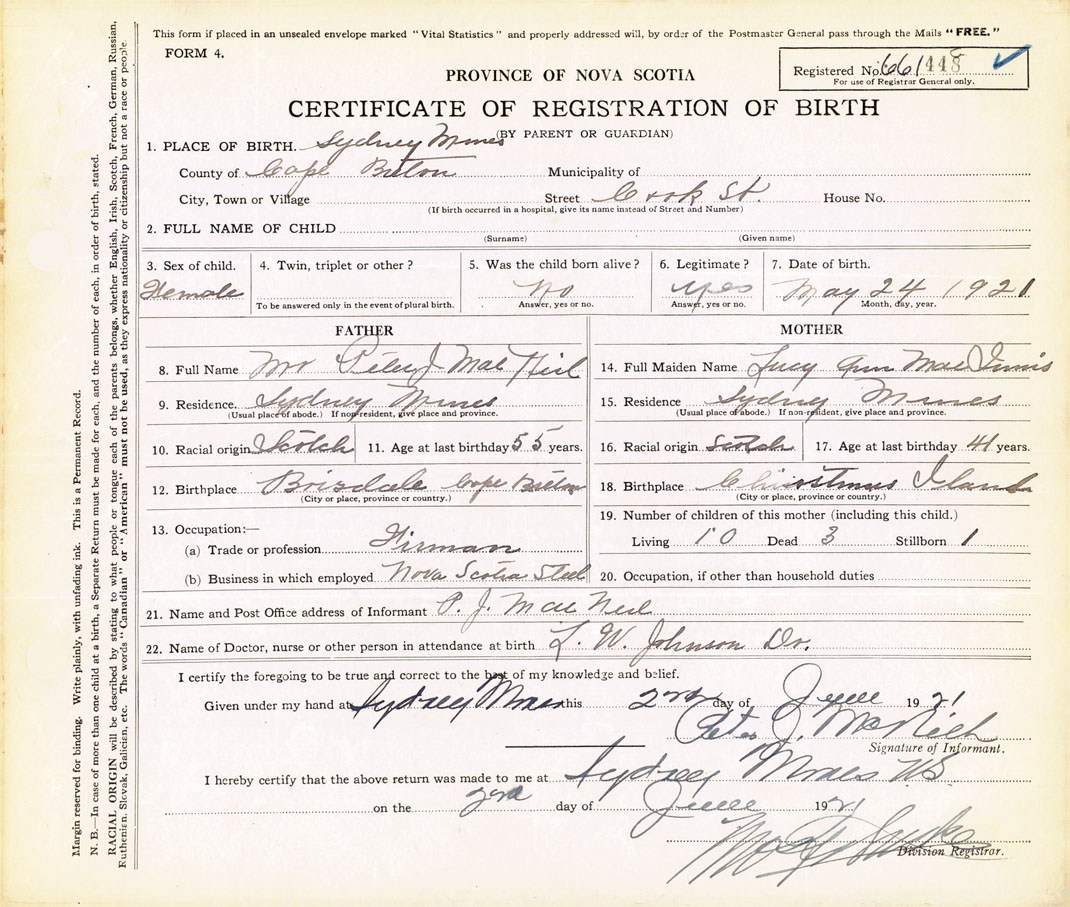 This form if placed in an unsealed envelope marked "Vital Statistics" and properly addressed will, by order of the Postmaster General pass through the Mails "FREE."
FORM 4.
Registered No. 661448
For use of Registrar General only.
PROVINCE OF NOVA SCOTIA
CERTIFICATE OF REGISTRATION OF BIRTH
(BY PARENT OR GUARDIAN)
1. PLACE OF BIRTH. Sydney Mines
County of Cape Breton Municipality of
City, Town or Village Street Crook St. House No.
(If birth occurred in a hospital, give its name instead of Street and Number)
2. FULL NAME OF CHILD
(Surname) (Given name)
3. Sex of child. 4. Twin, triplet or other? 5. Was the child born alive? 6. Legitimate? 7. Date of birth.
Female No yes May 24 1921
To be answered only in the event of plural birth. Answer, yes or no. Answer, yes or no. Month, day, year.
FATHER
8. Full Name Mr Peter J Mac Neil
9. Residence. Sydney Mines
(Usual place of abode.) If non-resident, give place and province.
10. Racial origin Scotch 11. Age at last birthday 55 years.
12. Birthplace Boisdale Cape Breton
(City or place, province or country.)
13. Occupation:—
(a) Trade or profession Firman
(b) Business in which employed Nova Scotia Steel
MOTHER
14. Full Maiden Name Lucy Ann Mac Innis
15. Residence Sydney Mines
(Usual place of abode.) If non-resident, give place and province.
16. Racial origin Scotch 17. Age at last birthday 41 years.
18. Birthplace Christmas Island
(City or place, province or country.)
19. Number of children of this mother (including this child.)
Living 10 Dead 3 Stillborn 1
20. Occupation, if other than household duties
21. Name and Post Office address of Informant P. J. Mac Neil
22. Name of Doctor, nurse or other person in attendance at birth L. W. Johnson Dr.
I certify the foregoing to be true and correct to the best of my knowledge and belief.
Given under my hand at Sydney Mines this 2nd day of June 1921
Peter J. McNeil
Signature of Informant.
I hereby certify that the above return was made to me at Sydney Mines N.S
on the 2nd day of June 1921
Division Registrar.
Margin reserved for binding. Write plainly, with unfading ink. This is a Permanent Record.
N. B.—In case of more than one child at a birth, a Separate Return must be made for each, and the number of each, in order of birth, stated.
RACIAL ORIGIN will be described by stating to what people or tongue each of the parents belongs, whether English, Irish, Scotch, French, German, Russian,
Ruthenian, Slovak, Galician, etc. The words "Canadian" or "American" must not be used, as they express nationality or citizenship but not a race or people.